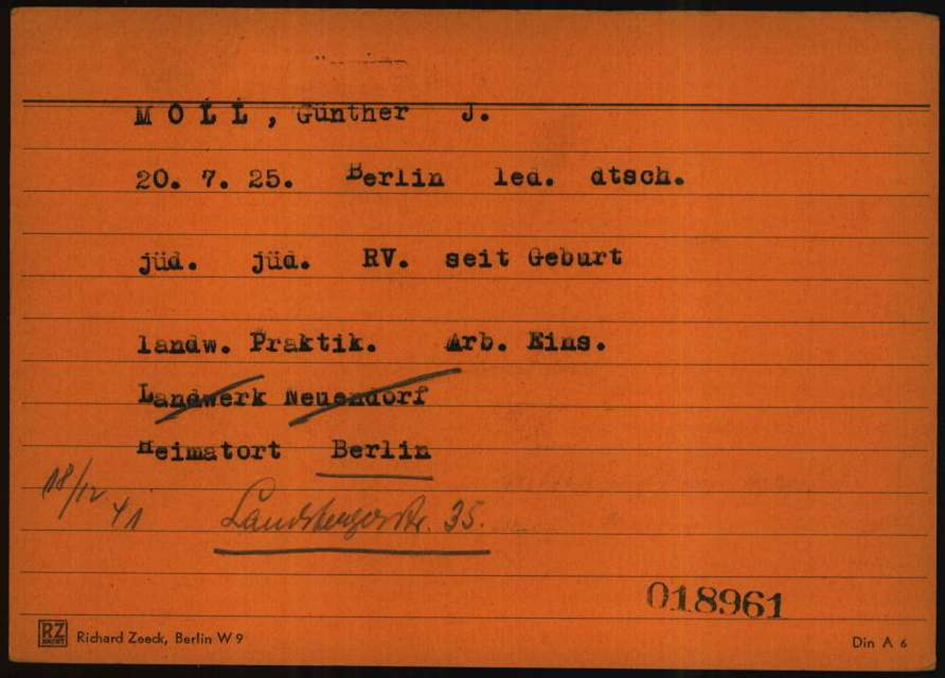 M O L L , Günther J.
20. 7. 25. Berlin led. dtsch.
jüd. jüd. RV. seit Geburt
landw. Praktik. Arb. Eins.
Landwerk Neuendorf
Heimatort Berlin
18/12 41 Landsbergerstr. 35.
018961
RZ Richard Zeeck, Berlin W 9 Din A 6